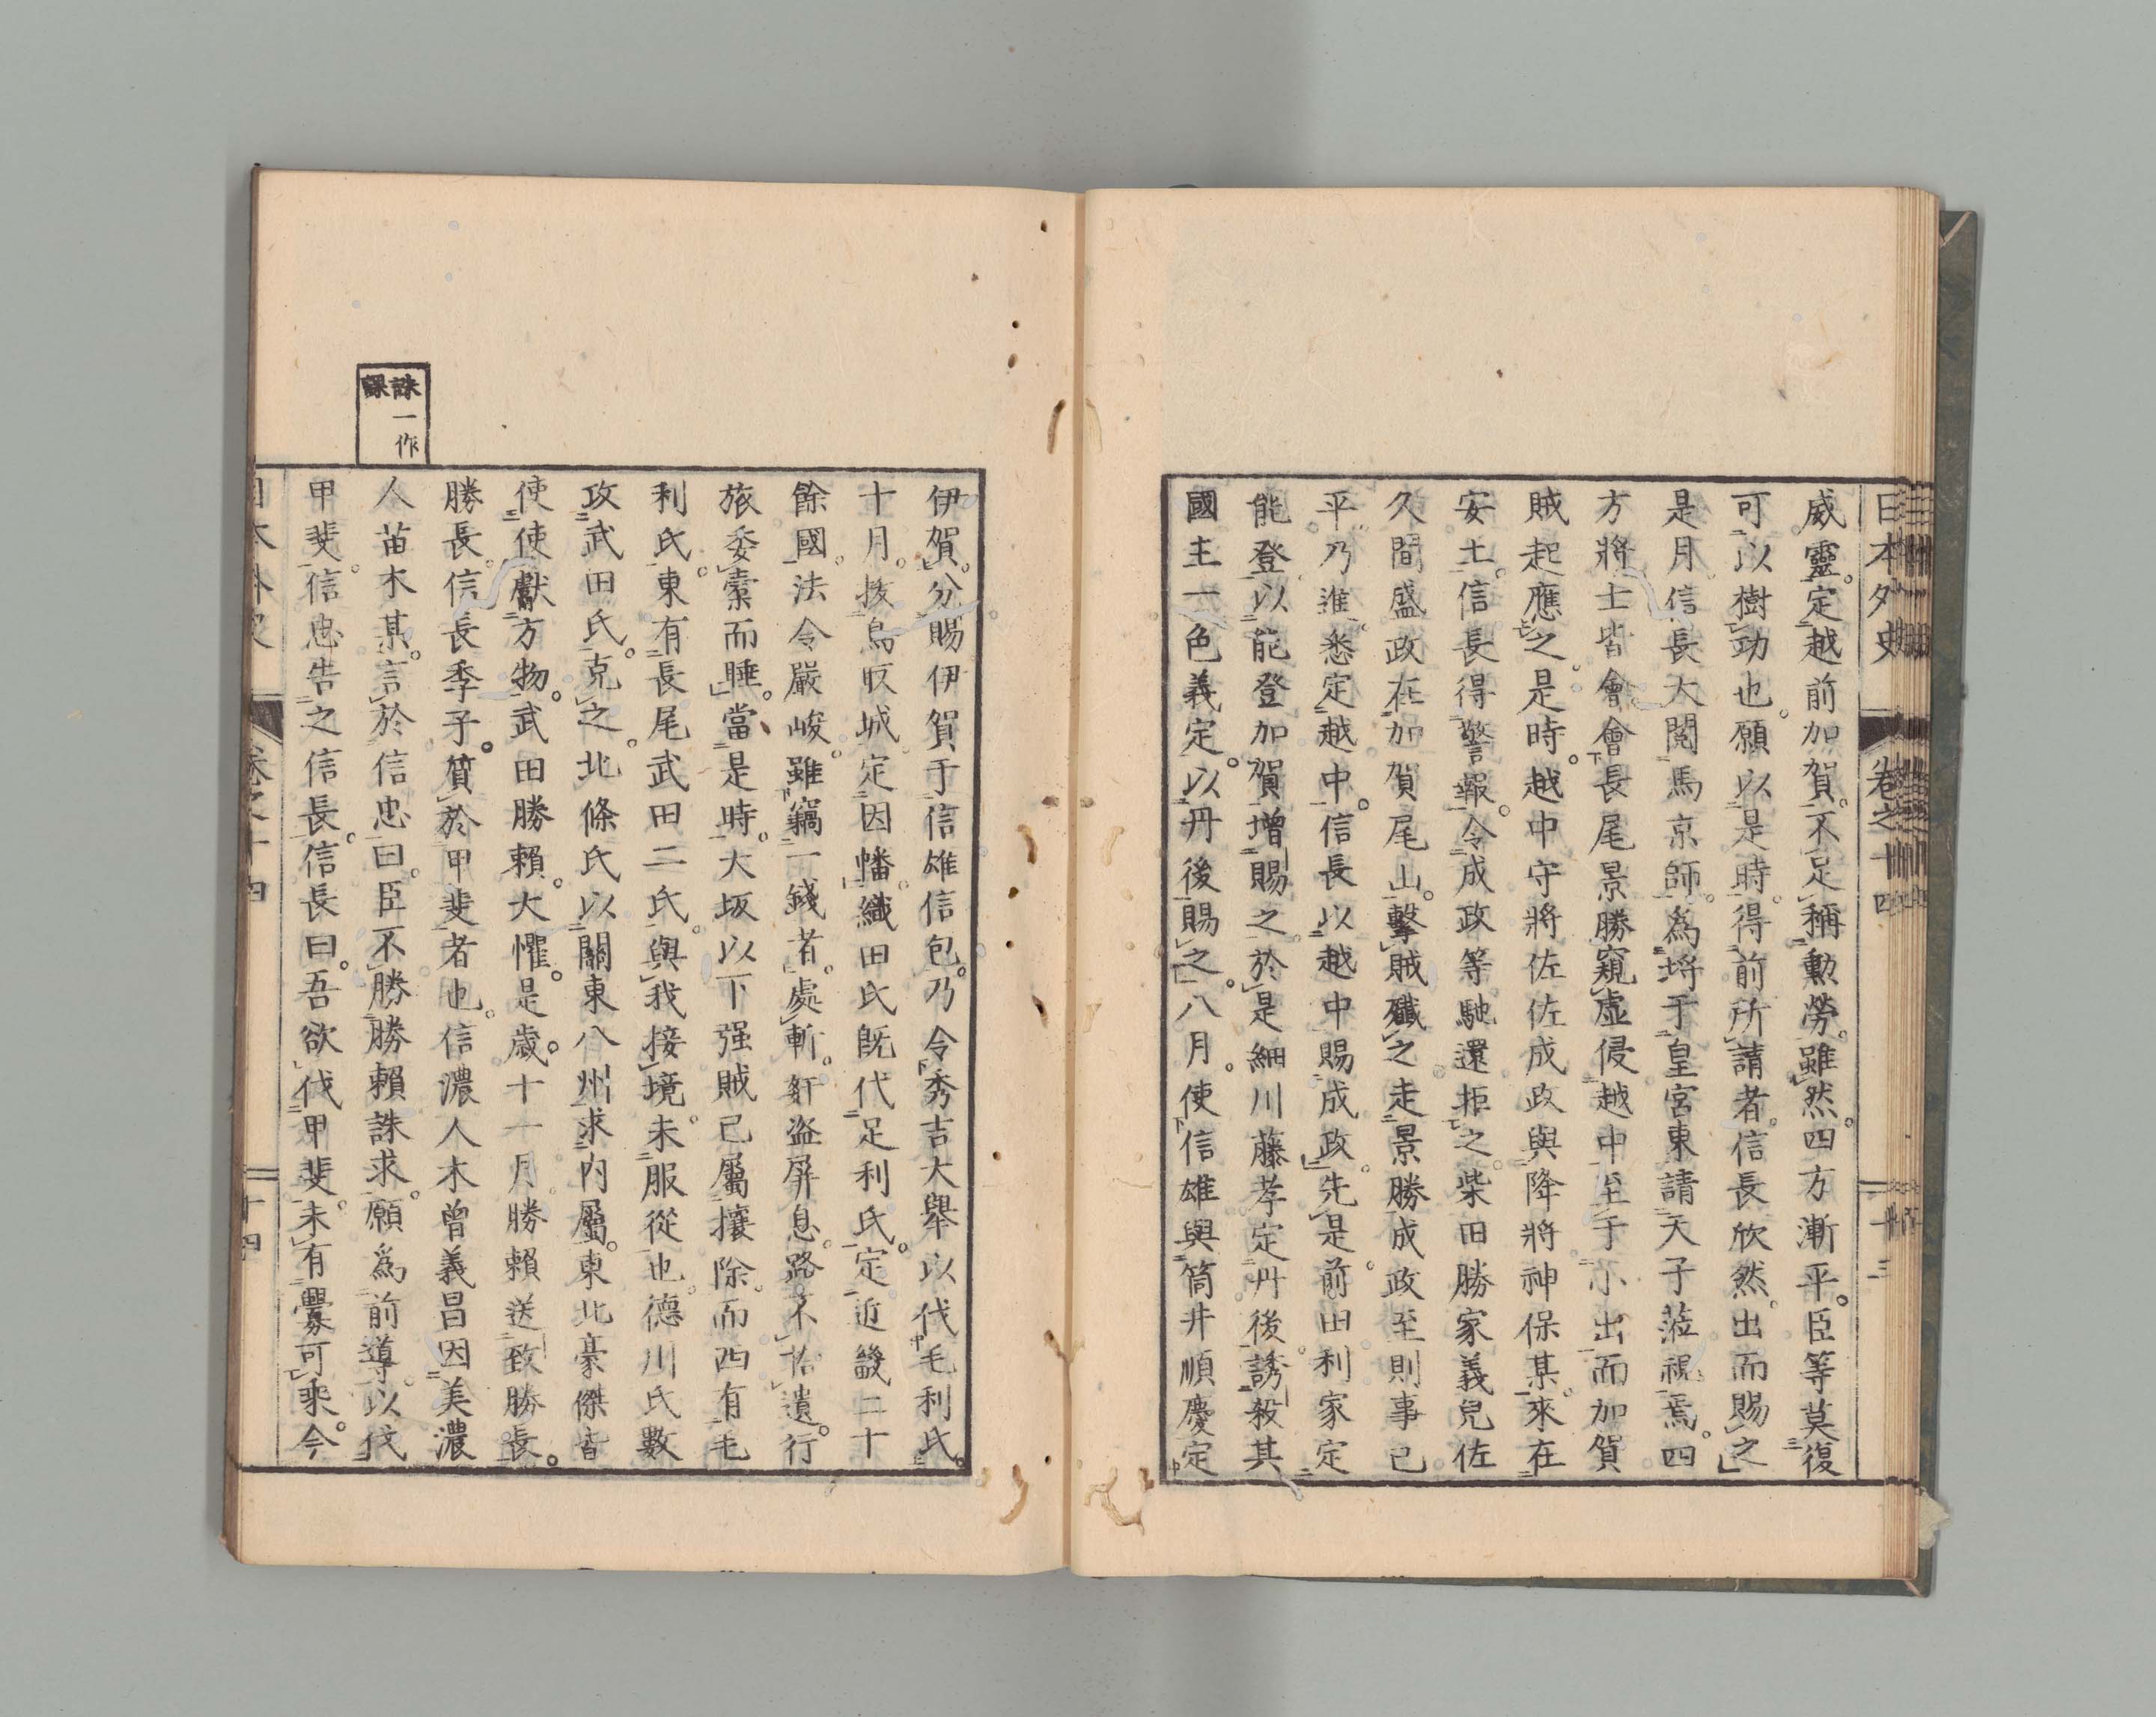 日本外史 卷之十四 十三
威靈。定越前加賀。不足稱勳勞。雖然。四方漸平。臣等莫復
可以樹功也。願以是時。得前所請者。信長欣然。出而賜之
是月信長大閱馬京師。爲埒于皇宮東請天子蒞視焉。四
方將士皆會會長尾景勝窺虛侵越中至于小出而加賀
賊起應之。是時。越中守將佐佐成政與降將神保某。來在
安土。信長得警報。令成政等馳還拒之。柴田勝家義兒佐
久間盛政在加賀尾山。擊賊殲之走景勝成政至則事已
平。乃進。悉定越中。信長以越中賜成政。先是。前田利家定
能登。以能登加賀增賜之。於是細川藤孝定丹後。誘殺其
國主一色義定。以丹後賜之。八月。使信雄與筒井順慶定
伊賀。分賜伊賀于信雄信包。乃令秀吉大舉以伐毛利氏。
十月。拔鳥取城。定因幡。織田氏既代足利氏。定近畿二十
餘國。法令嚴峻。雖竊一錢者。處斬。奸盜屏息。路不拾遺。行
旅委橐而睡。當是時。大坂以下强賊已屬攘除。而西有毛
利氏。東有長尾武田二氏。與我接境。未服從也。德川氏數
攻武田氏。克之。北條氏以關東八州求內屬。東北豪傑皆
使使獻方物。武田勝賴。大懼。是歲。十一月勝賴送致勝長。
勝長。信長季子。質於甲斐者也。信濃人木曾義昌因美濃
人苗木某。言於信忠曰。臣不勝勝賴誅求。願爲前導。以伐
甲斐。信忠告之信長。信長曰。吾欲伐甲斐。未有釁可乘。今
誅一作
課
日本外史 卷之十四 十四